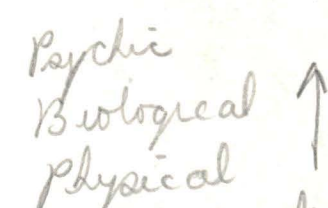 Psychic
Biological
Physical